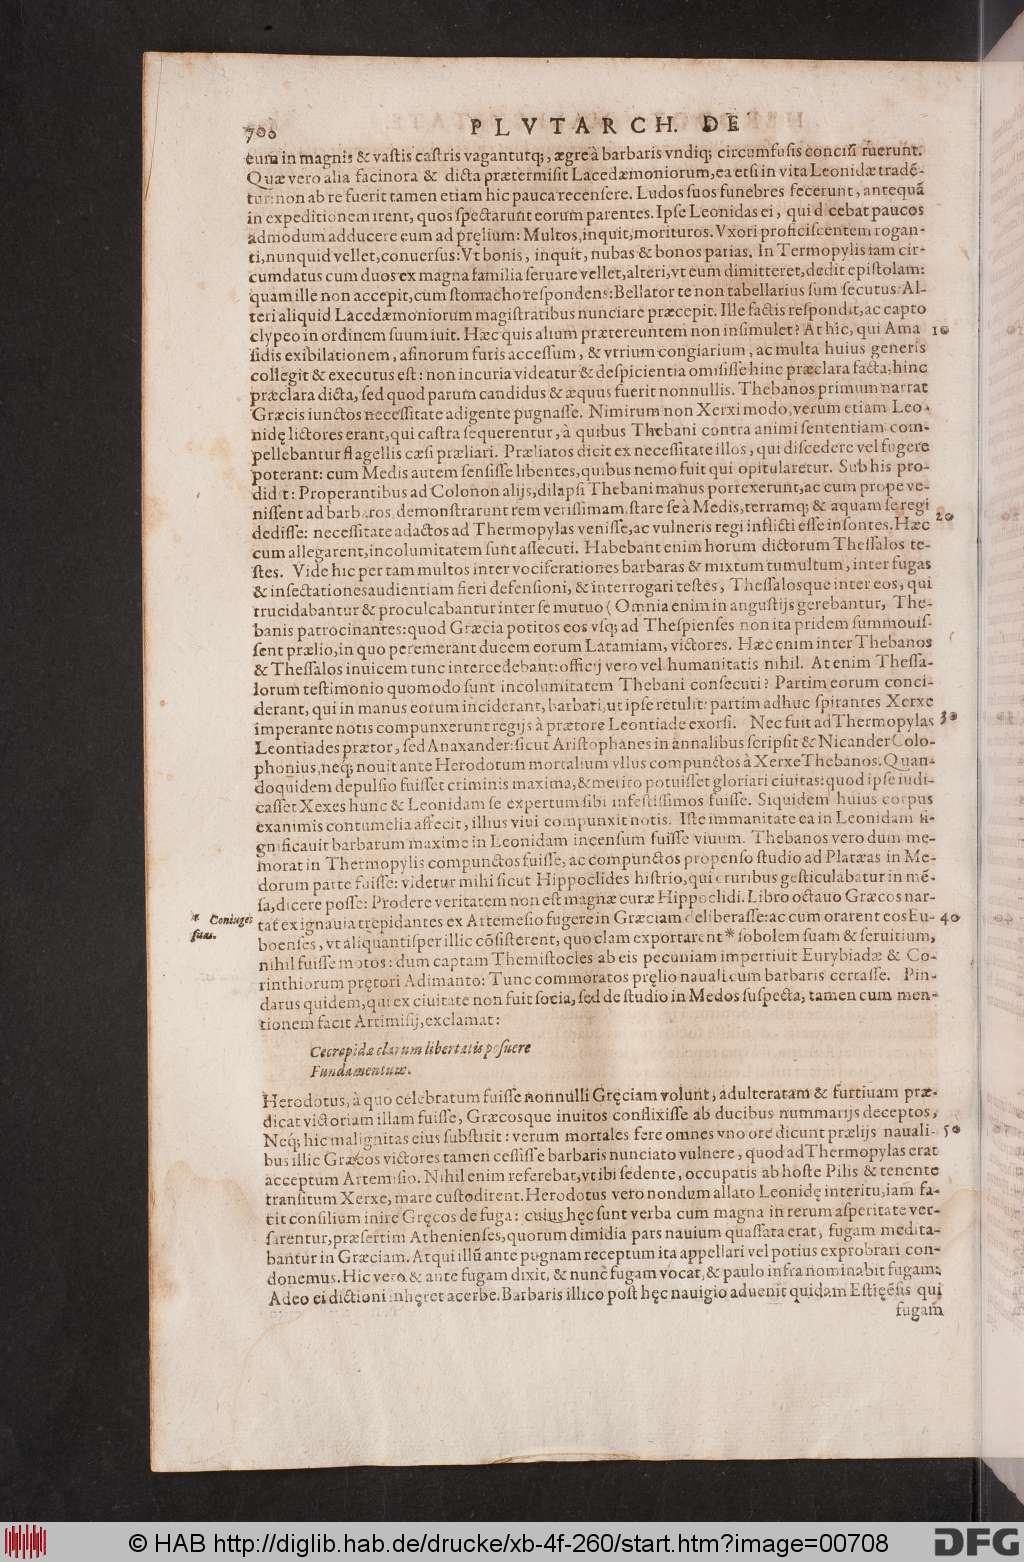 700 PLVTARCH. DE
cum in magnis & vastis castris vaganturq;, ægre à barbaris vndiq; circumfusis concisi ruerunt.
Quæ vero alia facinora & dicta prætermisit Lacedæmoniorum, ea etsi in vita Leonidæ tradē-
tur: non ab re fuerit tamen etiam hic pauca recensere. Ludos suos funebres fecerunt, antequā
in expeditionem irent, quos spectarunt eorum parentes. Ipse Leonidas ei, qui dicebat paucos
admodum adducere eum ad pręlium: Multos, inquit, morituros. Vxori proficiscentem rogan-
ti, nunquid vellet, conuersus: Vt bonis, inquit, nubas & bonos parias. In Termopylis iam cir-
cumdatus cum duos ex magna familia seruare vellet, alteri, vt eum dimitteret, dedit epistolam:
quam ille non accepit, cum stomacho respondens: Bellator te non tabellarius sum secutus. Al-
teri aliquid Lacedæmoniorum magistratibus nunciare præcepit. Ille factis respondit, ac capto
clypeo in ordinem suum iuit. Hæc quis alium prætereuntem non insimulet? At hic, qui Ama 10
sidis exibilationem, asinorum furis accessum, & vtrium congiarium, ac multa huius generis
collegit & executus est: non incuria videatur & despicientia omisisse hinc præclara facta, hinc
præclara dicta, sed quod parum candidus & æquus fuerit nonnullis. Thebanos primum narrat
Græcis iunctos necessitate adigente pugnasse. Nimirum non Xerxi modo, verum etiam Leo-
nidę lictores erant, qui castra sequerentur, à quibus Thebani contra animi sententiam com-
pellebantur flagellis cæsi præliari. Præliatos dicit ex necessitate illos, qui discedere vel fugere
poterant: cum Medis autem sensisse libentes, quibus nemo fuit qui opitularetur. Sub his pro-
didit: Properantibus ad Colonon alijs, dilapsi Thebani manus porrexerunt, ac cum prope ve-
nissent ad barbaros, demonstrarunt rem verissimam, stare se à Medis, terramq; & aquam se regi
dedisse: necessitate adactos ad Thermopylas venisse, ac vulneris regi inflicti esse insontes. Hæc 20
cum allegarent, incolumitatem sunt assecuti. Habebant enim horum dictorum Thessalos te-
stes. Vide hic per tam multos inter vociferationes barbaras & mixtum tumultum, inter fugas
& insectationes audientiam fieri defensioni, & interrogari testes, Thessalosque inter eos, qui
trucidabantur & proculcabantur inter se mutuo (Omnia enim in angustijs gerebantur, The-
banis patrocinantes: quod Græcia potitos eos vsq; ad Thespienses non ita pridem summouis-
sent prælio, in quo peremerant ducem eorum Latamiam, victores. Hæc enim inter Thebanos
& Thessalos inuicem tunc intercedebant: officij vero vel humanitatis nihil. At enim Thessa-
lorum testimonio quomodo sunt incolumitatem Thebani consecuti? Partim eorum conci-
derant, qui in manus eorum inciderant, barbari, ut ipse retulit: partim adhuc spirantes Xerxe
imperante notis compunxerunt regijs à prætore Leontiade exorsi. Nec fuit ad Thermopylas 30
Leontiades prætor, sed Anaxander: sicut Aristophanes in annalibus scripsit & Nicander Colo-
phonius, neq; nouit ante Herodotum mortalium vllus compunctos à Xerxe Thebanos. Quan-
doquidem depulsio fuisset criminis maxima, & merito potuisset gloriari ciuitas: quod ipse iudi-
casset Xexes hunc & Leonidam se expertum sibi infestissimos fuisse. Siquidem huius corpus
exanimis contumelia affecit, illius viui compunxit notis. Iste immanitate ea in Leonidam si-
gnificauit barbarum maxime in Leonidam incensum fuisse viuum. Thebanos vero dum me-
morat in Thermopylis compunctos fuisse, ac compunctos propenso studio ad Platæas in Me-
dorum parte fuisse: videtur mihi sicut Hippoclides histrio, qui cruribus gesticulabatur in mē-
sa, dicere posse: Prodere veritatem non est magnæ curæ Hippoclidi. Libro octauo Græcos nar-
tat ex ignauia trepidantes ex Artemesio fugere in Græciam deliberasse: ac cum orarent eos Eu- 40
* Coniuges
suas.
boenses, vt aliquantisper illic cōsisterent, quo clam exportarent* sobolem suam & seruitium,
nihil fuisse motos: dum captam Themistocles ab eis pecuniam impertiuit Eurybiadæ & Co-
rinthiorum prętori Adimanto: Tunc commoratos pręlio nauali cum barbaris certasse. Pin-
darus quidem, qui ex ciuitate non fuit socia, sed de studio in Medos suspecta, tamen cum men-
tionem facit Artimisij, exclamat:
Cecropidæ clarum libertatis posuere
Fundamentum.
Herodotus, à quo celebratum fuisse nonnulli Gręciam volunt, adulteratam & furtiuam præ-
dicat victoriam illam fuisse, Græcosque inuitos conflixisse ab ducibus nummarijs deceptos,
Neq; hic malignitas eius substitit: verum mortales fere omnes vno ore dicunt prælijs nauali- 50
bus illic Græcos victores tamen cessisse barbaris nunciato vulnere, quod ad Thermopylas erat
acceptum Artemisio. Nihil enim referebat, vt ibi sedente, occupatis ab hoste Pilis & tenente
transitum Xerxe, mare custodirent. Herodotus vero nondum allato Leonidę interitu, iam fa-
cit consilium inire Gręcos de fuga: cuius hęc sunt verba cum magna in rerum asperitate ver-
sarentur, præsertim Athenienses, quorum dimidia pars nauium quassata erat, fugam medita-
bantur in Græciam. Atqui illū ante pugnam receptum ita appellari vel potius exprobrari con-
donemus. Hic vero & ante fugam dixit, & nunc fugam vocat, & paulo infra nominabit fugam.
Adeo ei dictioni inhęret acerbe. Barbaris illico post hęc nauigio aduenit quidam Estięēsis qui
fugam
© HAB http://diglib.hab.de/drucke/xb-4f-260/start.htm?image=00708
DFG